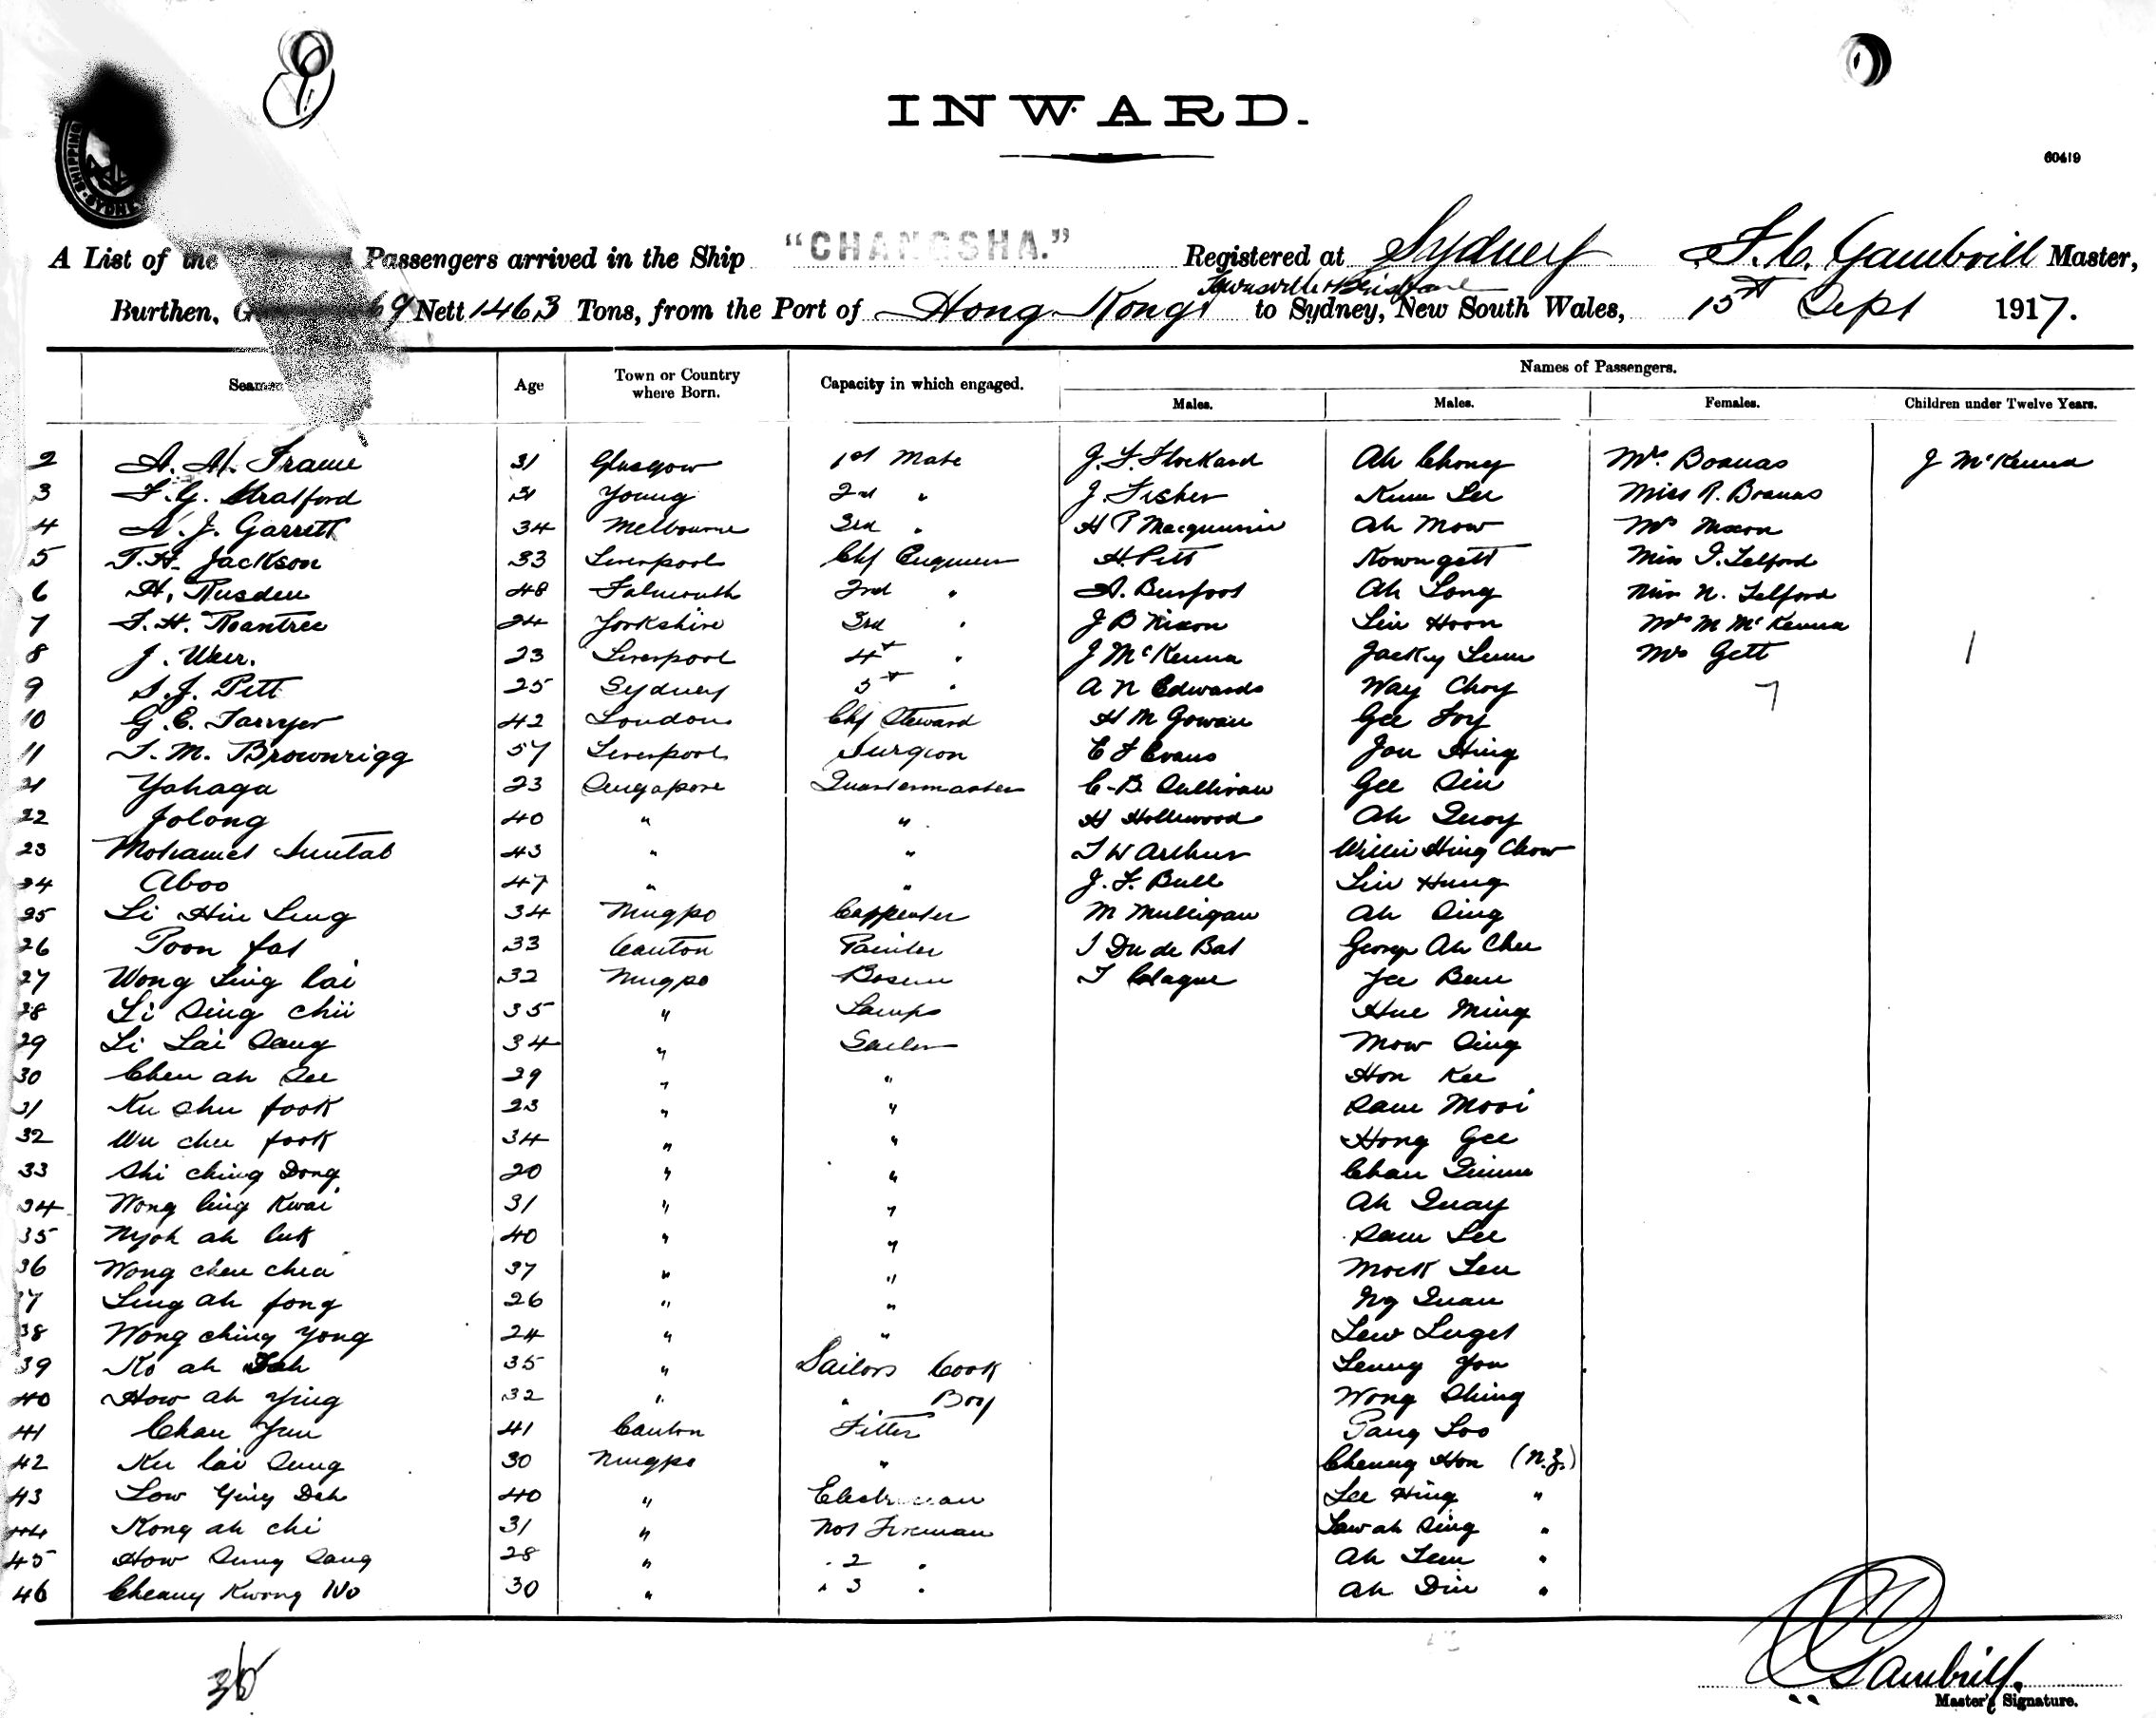 INWARD.
60419
A List of the Passengers arrived in the Ship "CHANGSHA." Registered at Sydney F. C. Gambrill Master,
Townsville & Brisbane
Burthen, Nett 1463 Tons, from the Port of Hong Kong to Sydney, New South Wales, 15th Sept 1917.
Seamen Age Town or Country where Born. Capacity in which engaged. Names of Passengers.
Males. Males. Females. Children under Twelve Years.
2 A. H. Frame 31 Glasgow 1st Mate J. F. Flockard Ah Chong Mrs. Boanas J McKenna
3 F. G. Stratford 31 Young 2nd " J. Fisher Kum Lee Miss R. Boanas
4 A. J. Garrett 34 Melbourne 3rd " H P Ah Mow Mrs Nixon
5 T. H. Jackson 33 Liverpool Chf Engineer H. Pett Kowngett Miss I. Telford
6 H. Rusden 48 Falmouth 2nd " A. Burfoot Ah Long Miss N. Telford
7 F. H. Roantree 24 Yorkshire 3rd " J B Nixon Lin Hoon Mrs M McKenna
8 J. Weir. 23 Liverpool 4th " J McKenna Jacky Lum Mrs Gett 1
9 S. J. Pitt 25 Sydney 5th " A N Edwards Way Choy 7
10 G. E. Tarryer 42 London Chf Steward H M Gowan Gee Foy
11 T. M. Brownrigg 57 Liverpool Surgeon E F Evans Jon Hing
21 Yahaga 23 Singapore Quartermaster C. B. Sullivan Gee Sin
22 Jolong 40 " " H Hollewood Ah Quoy
23 Mohamet Suntab 43 " " T W Arthur Willie Hing Chow
24 Aboo 47 " " J. F. Bull Lin Hung
25 Li Hin Sung 34 Ningpo Carpenter M Mulligan Ah Sing
26 Poon fat 33 Canton Painter J Du de Bat George Ah Chee
27 Wong Sing lai 32 Ningpo Bosun T Clague Yee Bew
28 Li Sing Chii 35 " Lamps Hue Ming
29 Li Lai Sang 34 " Sailor Mow Sing
30 Chen ah See 29 " " Hon Kee
31 Ku Shu fook 23 " " Sam Mooi
32 Wu chu fook 34 " " Hong Gee
33 Shi ching Dong 20 " " Chan
34 Wong ling Kwai 31 " " Ah Quay
35 Nyoh ah luk 40 " " Sam Lee
36 Wong chen chea 37 " " Mock Len
37 Ling ah fong 26 " " Ng Quan
38 Wong ching yong 24 " " Lew
39 Ko ah 35 " Sailors Cook Leung You
40 How ah Ying 32 " " Boy Wong Shing
41 Chan Yun 41 Canton Fitter Pang Loo
42 Ku lai Sung 30 Ningpo " Cheung Hon (N.Z.)
43 Low Ying Dah 40 " Electrician Lee Hing "
44 Kong ah chi 31 " No1 Fireman Law ah Sing "
45 How Sung Sang 28 " " 2 " Ah Lem "
46 Cheang Kwong Wo 30 " " 3 " Ah Din "
36
Gambrill.
Master's Signature.